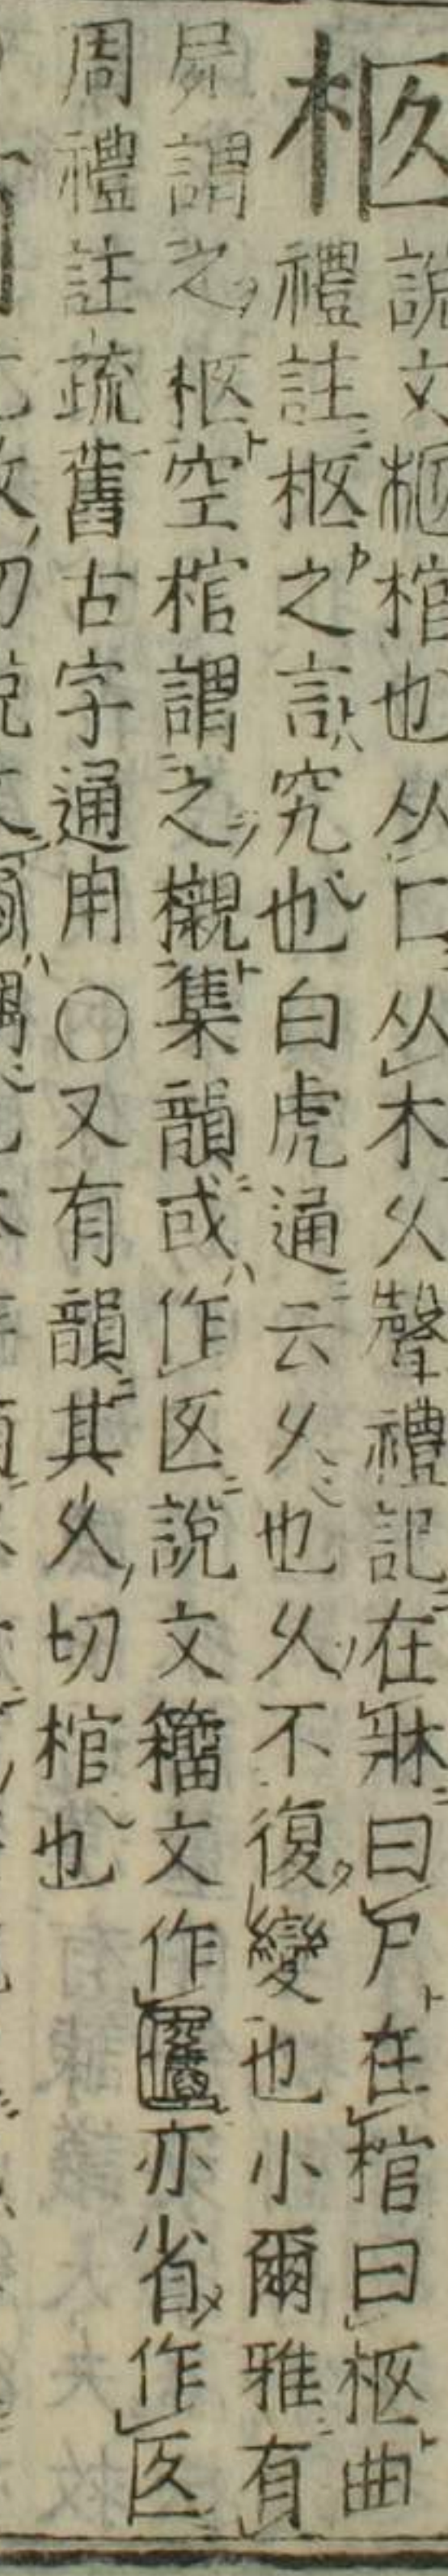 柩
說文柩棺也从匚从木久聲禮記在牀曰尸在棺曰柩曲
禮註柩之言究也白虎通云久也久不復變也小爾雅有
屍謂之柩空棺謂之櫬集韻或作匛說文籀文作匶亦省作匛
周禮註疏舊古字通用〇又有韻其久切棺也